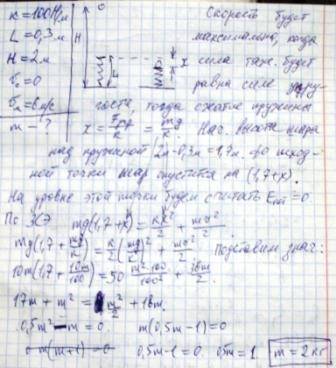 K = 100 Н/м
L = 0,3 м
H = 2 м
V₀ = 0
m - ?
H
0
L
x
Скорость будет
максимальна, когда
сила тяж. будет
равна силе упру-
гости, тогда сжатие пружины
x = Fупр/k = mg/k. Нач. высота шара
над пружиной 2м - 0,3м = 1,7м. Во исход-
ной точки шар опустится на (1,7 + x).
На уровне этой точки будем считать Eп = 0
По ЗСЭ mg(1,7 + x) = kx²/2 + mv²/2
mg(1,7 + mg/k) = k/2 (mg/k)² + mv²/2 Подставим знач:
10m(1,7 + 10m/100) = 50 m²·100/100² + 36m/2
17m + m² = m²/2 + 18m
0,5m² - m = 0. m(0,5m - 1) = 0
0,5m - 1 = 0. 0,5m = 1 m = 2 кг